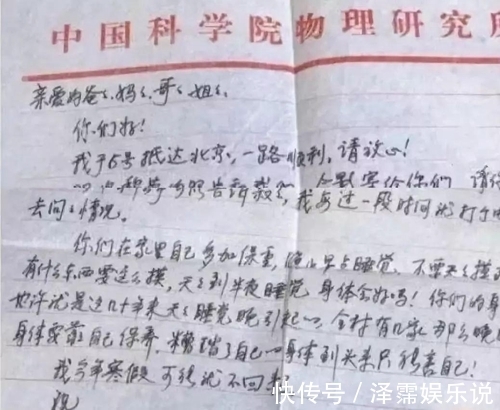 中国科学院物理研究所
亲爱的爸爸、妈妈、哥哥、姐姐:
你们好!
我于5号抵达北京,一路顺利,请放心!
我过一段时间
去问问情况。
你们在家里自己多加保重,晚上早点睡觉,不要天天摸
有什么东西要这么摸,天天到半夜睡觉,身体会好吗!你们的身
也许就是这几十年来天天睡觉晚引起的,全村有几家那么晚
身体要靠自己保养,糟蹋了自己的身体到头来只能害自己!
我今年寒假可能就不回去
祝
快传号/泽霈娱乐说